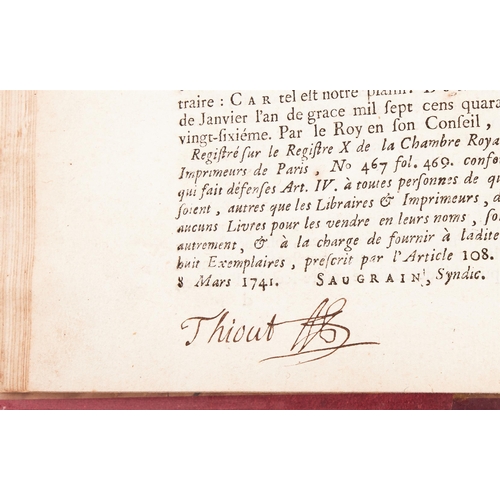 traire : CAR tel est notre plaisir.
de Janvier l'an de grace mil sept cens quara
vingt-sixiéme. Par le Roy en son Conseil,
Registré sur le Registre X de la Chambre Roya
Imprimeurs de Paris, No 467 fol. 469. confor
qui fait défenses Art. IV. à toutes personnes de qu
soient, autres que les Libraires & Imprimeurs, d
aucuns Livres pour les vendre en leurs noms, so
autrement, & à la charge de fournir à ladite
huit Exemplaires, prescrit par l'Article 108.
8 Mars 1741. SAUGRAIN, Syndic.
Thiout